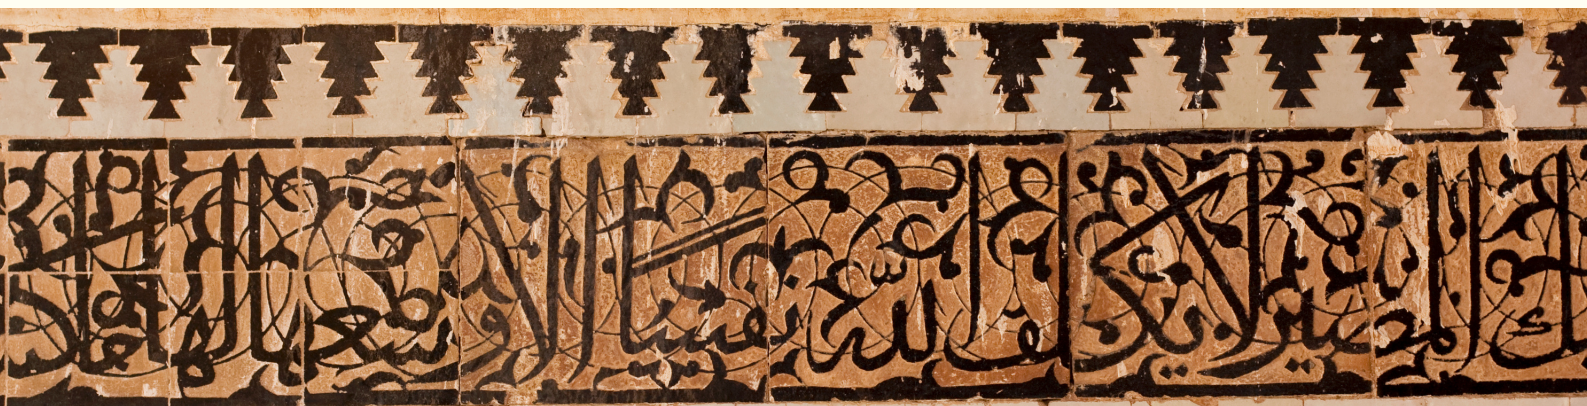 ك المصير لا يكلف الله نفسا الا وسعها لها